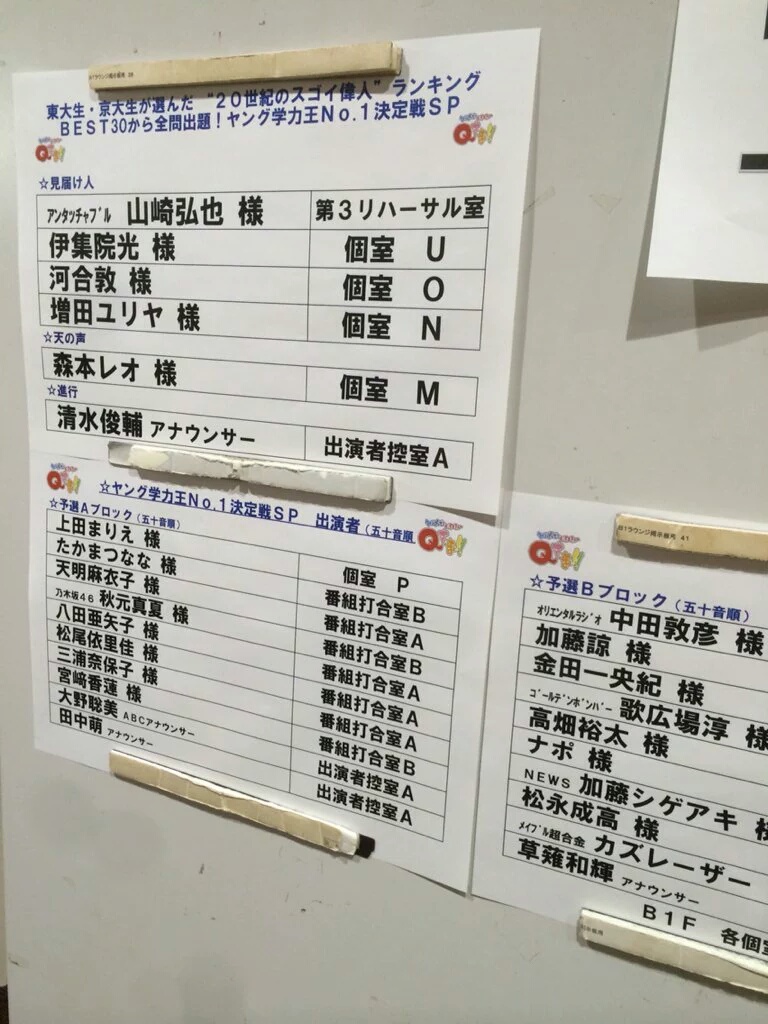 B1ラウンジ掲示板用 39
東大生・京大生が選んだ “20世紀のスゴイ偉人” ランキング
BEST30から全問出題！ヤング学力王No.1決定戦SP
Qさま!!
Qさま!!
☆見届け人
アンタッチャブル 山崎弘也 様 第3リハーサル室
伊集院光 様 個室 U
河合敦 様 個室 O
増田ユリヤ 様 個室 N
☆天の声
森本レオ 様 個室 M
☆進行
清水俊輔 アナウンサー 出演者控室A
Qさま!!
☆ヤング学力王No.1決定戦SP 出演者（五十音順
Qさま!!
☆予選Aブロック（五十音順）
上田まりえ 様 個室 P
たかまつなな 様 番組打合室B
天明麻衣子 様 番組打合室A
乃木坂46 秋元真夏 様 番組打合室B
八田亜矢子 様 番組打合室A
松尾依里佳 様 番組打合室A
三浦奈保子 様 番組打合室A
宮﨑香蓮 様 番組打合室B
大野聡美 ABCアナウンサー 出演者控室A
田中萌 アナウンサー 出演者控室A
B1ラウンジ掲示板用 41
Qさま!!
☆予選Bブロック（五十音順）
オリエンタルラジオ 中田敦彦 様
加藤諒 様
金田一央紀 様
ゴールデンボンバー 歌広場淳 様
高畑裕太 様
ナポ 様
NEWS 加藤シゲアキ 様
松永成高 様
メイプル超合金 カズレーザー
草薙和輝 アナウンサー
B1F 各個室